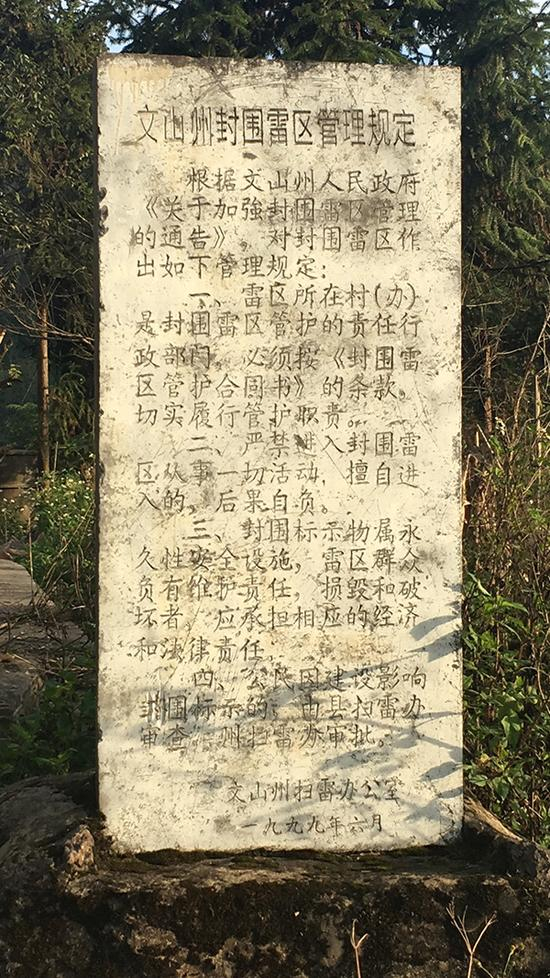 文山州封围雷区管理规定
根据文山州人民政府
《关于加强封围雷区管理
的通告》,对封围雷区作
出如下管理规定:
一、雷区所在村(办)
是封围雷区管护的责任行
政部门,必须按《封围雷
区管护合同书》的条款,
切实履行管护职责。
二、严禁进入封围雷
区从事一切活动,擅自进
入的,后果自负。
三、封围标示物属永
久性安全设施,雷区群众
负有维护责任,损毁和破
坏者,应承担相应的经济
和法律责任。
四、公民因建设影响
封围标示的,由县扫雷办
审查,州扫雷办审批。
文山州扫雷办公室
一九九九年六月